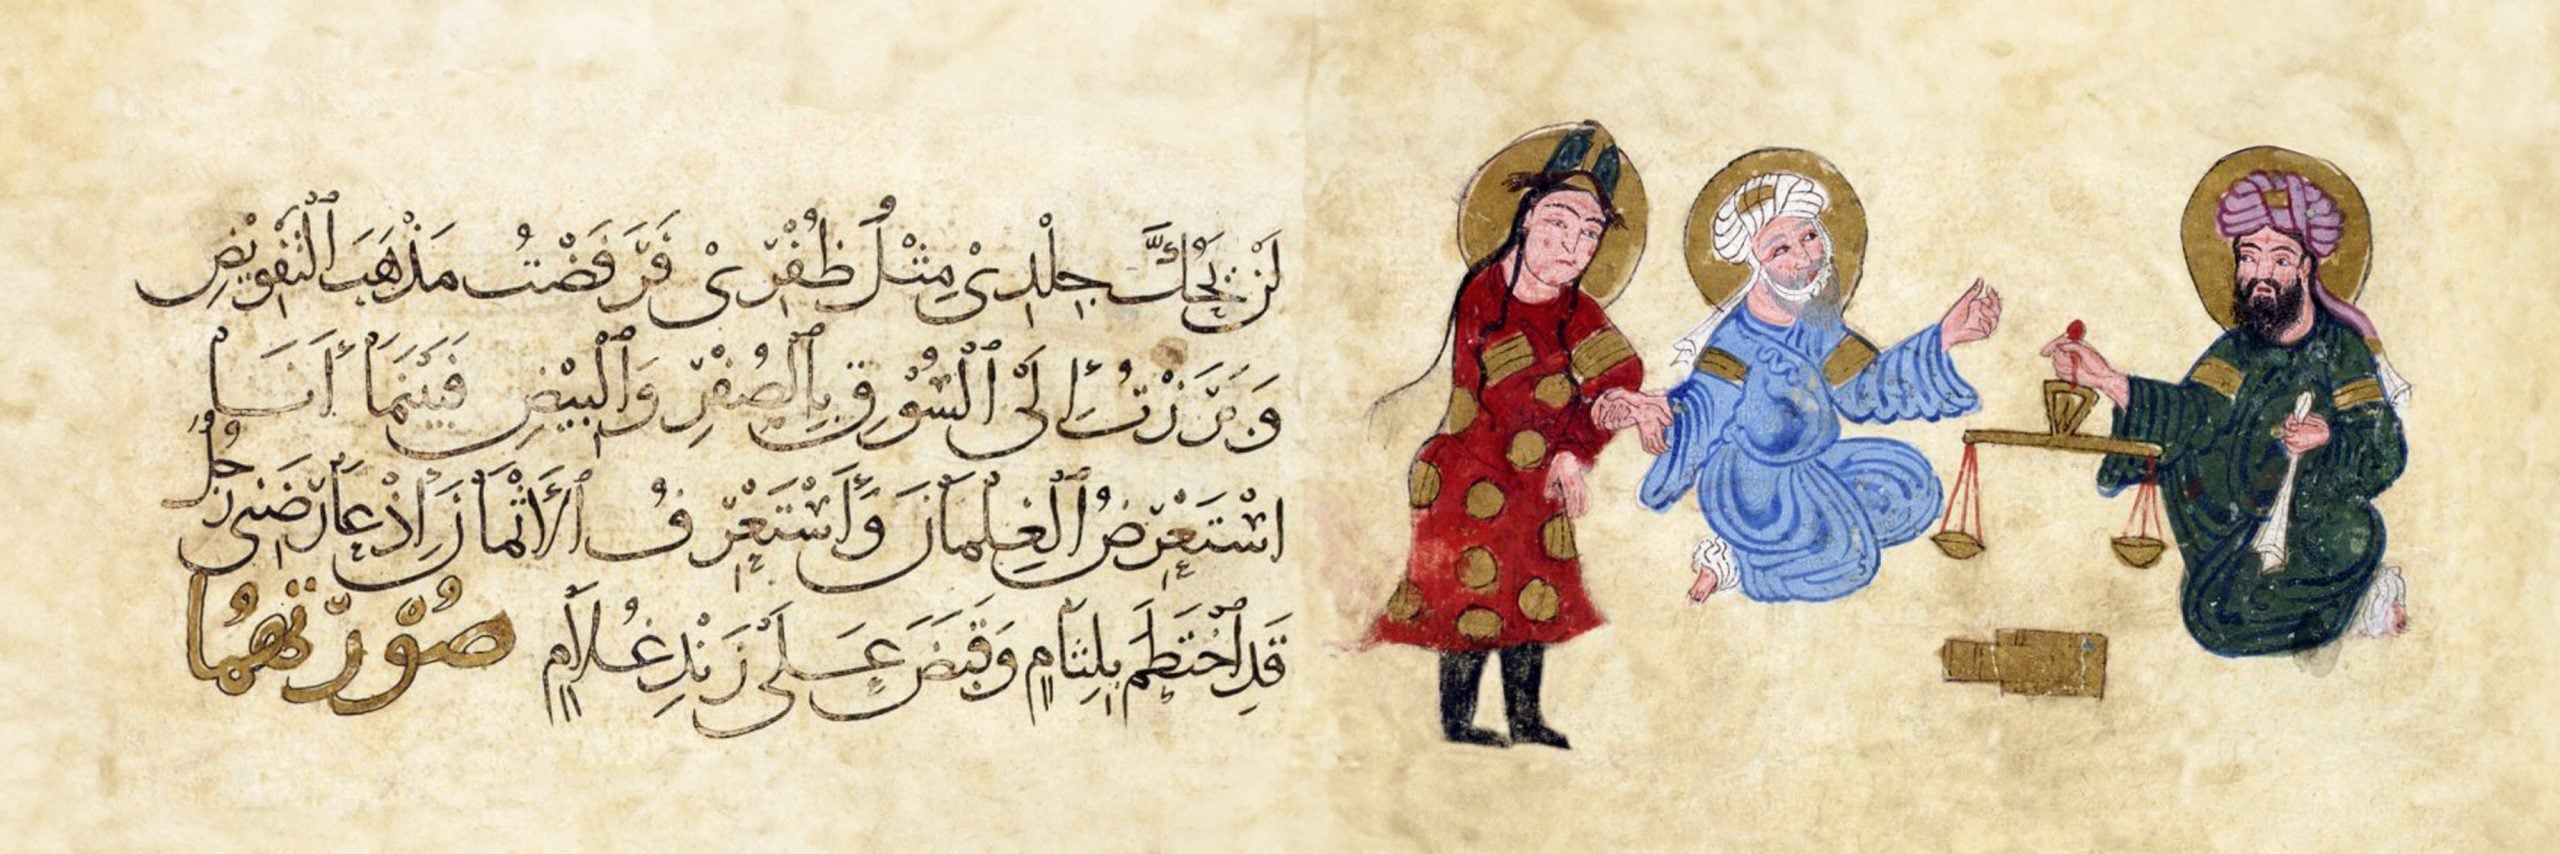 لَنْ يَحُكَّ جِلْدِىْ مِثْلُ ظُفْرِىْ فَرَفَضْتُ مَذْهَبَ الْتَفْوِيْضِ
وَبَرَزْتُ إِلَى الْسُوْقِ بِالْصُفْرِ وَالْبِيْضِ فَبَيْنَمَا أَنَا
اسْتَعْرِضُ الْغِلْمَانَ وَأَسْتَعْرِفُ الْأَثْمَانَ إِذْ عَارَضَنِى رَجُلٌ
قَدِ اخْتَطَمَ بِلِثَامٍ وَقَبَضَ عَلَىْ زَنْدِ غُلَامٍ صُوْرَتهُمَا